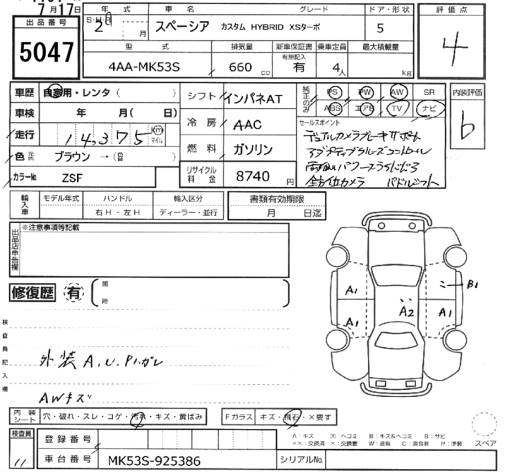 7月17日
出品番号
5047
年式 車名 グレード ドア・形状
S・H・R 2 年 月 スペーシア カスタム HYBRID XSターボ 5
型式 排気量 新車保証書 乗車定員 最大積載量
有無記入
4AA-MK53S 660 cc 有 4人 kg
評価点
4
車歴 自家用・レンタ( )
車検 年 月( )
走行 14,375 km マイル
色 ブラウン →(
カラーNo. ZSF
シフト インパネAT
冷房 AAC
燃料 ガソリン
リサイクル料金 8740円
純正のみ PS PW AW SR
ABS エアB TV ナビ
セールスポイント
デュアルカメラブレーキサポート
アダプティブクルーズコントロール
両側パワースライドドア
全方位カメラ パドルシフト
内装評価
b
輸入車 モデル年式 ハンドル 輸入区分
右H・左H ディーラー・並行
書類有効期限
月 日迄
出品店申告欄
※注意事項等記載
修復歴 有
検査員記入欄
外装A,U,Pハガレ
AWキズ
A1 A1 A2 A1 A1 B1
内装シート 穴・破れ・スレ・コゲ・汚れ・キズ・黄ばみ
Fガラス キズ・飛石・×要す
検査員
登録番号
車台番号 MK53S-925386 シリアルNo.
スペア